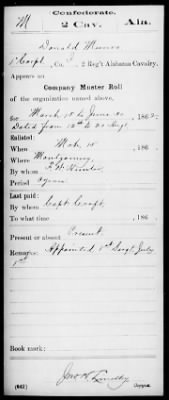 Confederate.
M 2 Cav. Ala.
Donald
1 Sergt, Co. 2 Reg't Alabama Cavalry.
Appears on
Company Muster Roll
of the organization named above,
for March 15 to June 30, 186
Enlisted:
When Mch 15, 186
Where Montgomery
By whom F. W. Hunter
Period
Last paid:
By whom Capt
To what time , 186 .
Present or absent Present
Remarks: Appointed 1st Sergt July
1st
Book mark:
(642) Copyist.